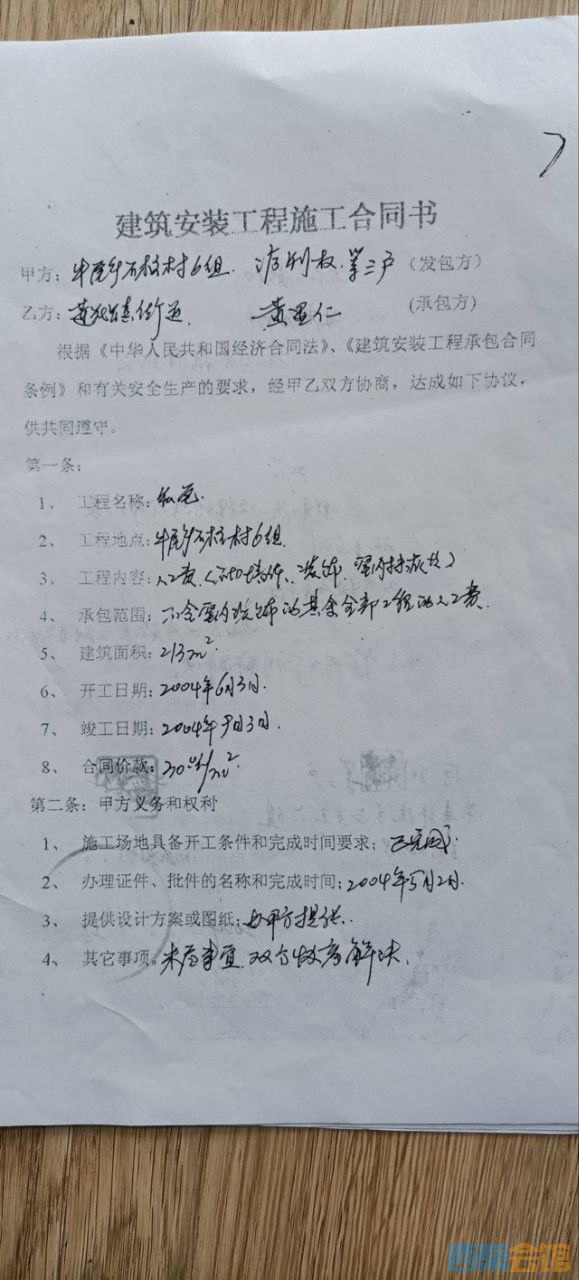 建筑安装工程施工合同书
甲方：牛尾乡石柱村6组. 权. 等三户（发包方）
乙方：街道. 黄显仁 (承包方)
根据《中华人民共和国经济合同法》、《建筑安装工程承包合同
条例》和有关安全生产的要求，经甲乙双方协商，达成如下协议，
供共同遵守。
第一条：
1、 工程名称：私宅.
2、 工程地点：牛尾乡石柱村6组.
3、 工程内容：人工费（ ）
4、 承包范围：不含室内装饰的其余全部工程的人工费.
5、 建筑面积：213m².
6、 开工日期：2004年6月3日.
7、 竣工日期：2004年9月3日.
8、 合同价款：/m²
第二条：甲方义务和权利
1、 施工场地具备开工条件和完成时间要求；已完成.
2、 办理证件、批件的名称和完成时间：2004年5月2日.
3、 提供设计方案或图纸：由甲方提供.
4、 其它事项。未尽事宜.双方协商解决.
西祠会馆